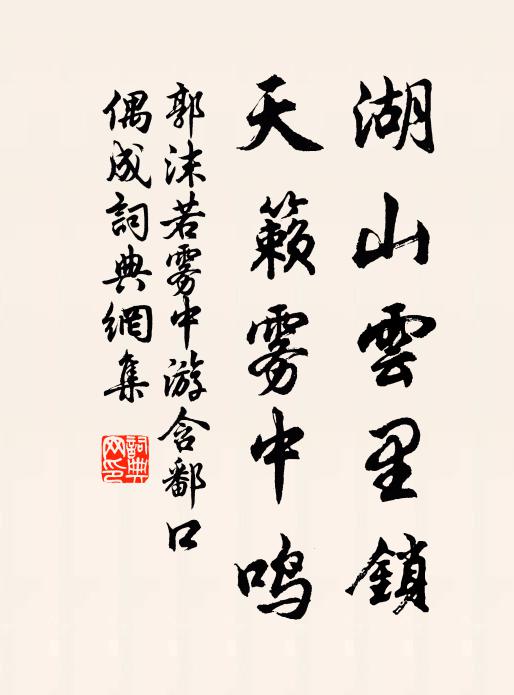 湖山雲里鎖
天籟雾中鸣
郭沫若雾中游含鄱口
偶成詞典網集
詞典网印